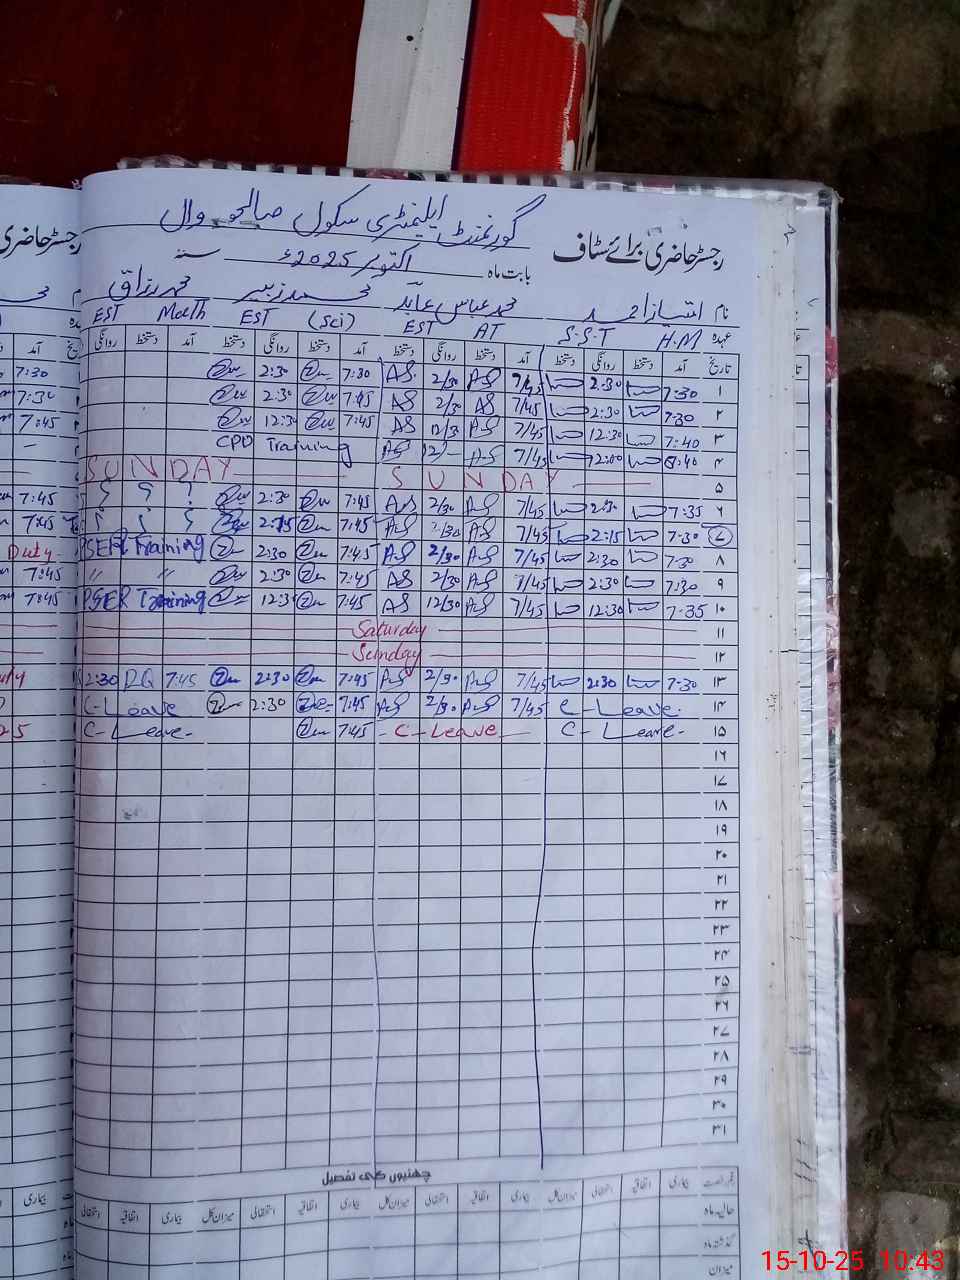 گورنمنٹ ایلیمنٹری سکول صالحو وال
رجسٹر حاضری برائے سٹاف
بابت ماہ اکتوبر 2025ء سنہ
نام امتیاز احمد محمد عباس عابد محمد زبیر محمد رزاق
عہدہ H.M S.S.T AT EST (Sci) EST Math EST
تاریخ آمد دستخط روانگی دستخط آمد دستخط روانگی دستخط آمد دستخط روانگی دستخط آمد دستخط روانگی
۱ 7:30 2:30 7/45 AS 2/30 AS 7:30 2:30
۲ 7:30 2:30 7/45 AS 2/30 AS 7:45 2:30
۳ 7:40 12:30 7/45 AS 12/30 AS 7:45 12:30
۴ 8:40 12:00 7/45 AS 12/- AS CPD Training
۵ SUNDAY SUNDAY
۶ 7:35 2:30 7/45 AS 2/30 AS 7:45 2:30 ؟ ؟ ؟
۷ 7:30 2:15 7/45 AS 2/30 AS 7:45 2:15 ؟ ؟ ؟
۸ 7:30 2:30 7/45 AS 2/30 AS 7:45 2:30 PSER Training
۹ 7:30 2:30 7/45 AS 2/30 AS 7:45 2:30 〃 〃
۱۰ 7:35 12:30 7/45 AS 12/30 AS 7:45 12:30 PSER Training
۱۱ Saturday
۱۲ Sunday
۱۳ 7:30 2:30 7/45 AS 2/30 AS 7:45 2:30 7:45 2:30
۱۴ C-Leave 7/45 AS 2/30 AS 7:45 2:30 C-Leave
۱۵ C-Leave - C-Leave - 7:45 C-Leave
۱۶
۱۷
۱۸
۱۹
۲۰
۲۱
۲۲
۲۳
۲۴
۲۵
۲۶
۲۷
۲۸
۲۹
۳۰
۳۱
چھٹیوں کی تفصیل
قسم رخصت بیماری اتفاقیہ استحقاقی میزان کل بیماری اتفاقیہ استحقاقی میزان کل بیماری اتفاقیہ استحقاقی میزان کل بیماری اتفاقیہ استحقاقی
حالیہ ماہ
گذشتہ ماہ
میزان
7:30
7:30
7:45
-
7:45
7:45
Duty
7:45
7:45
15-10-25 10:43